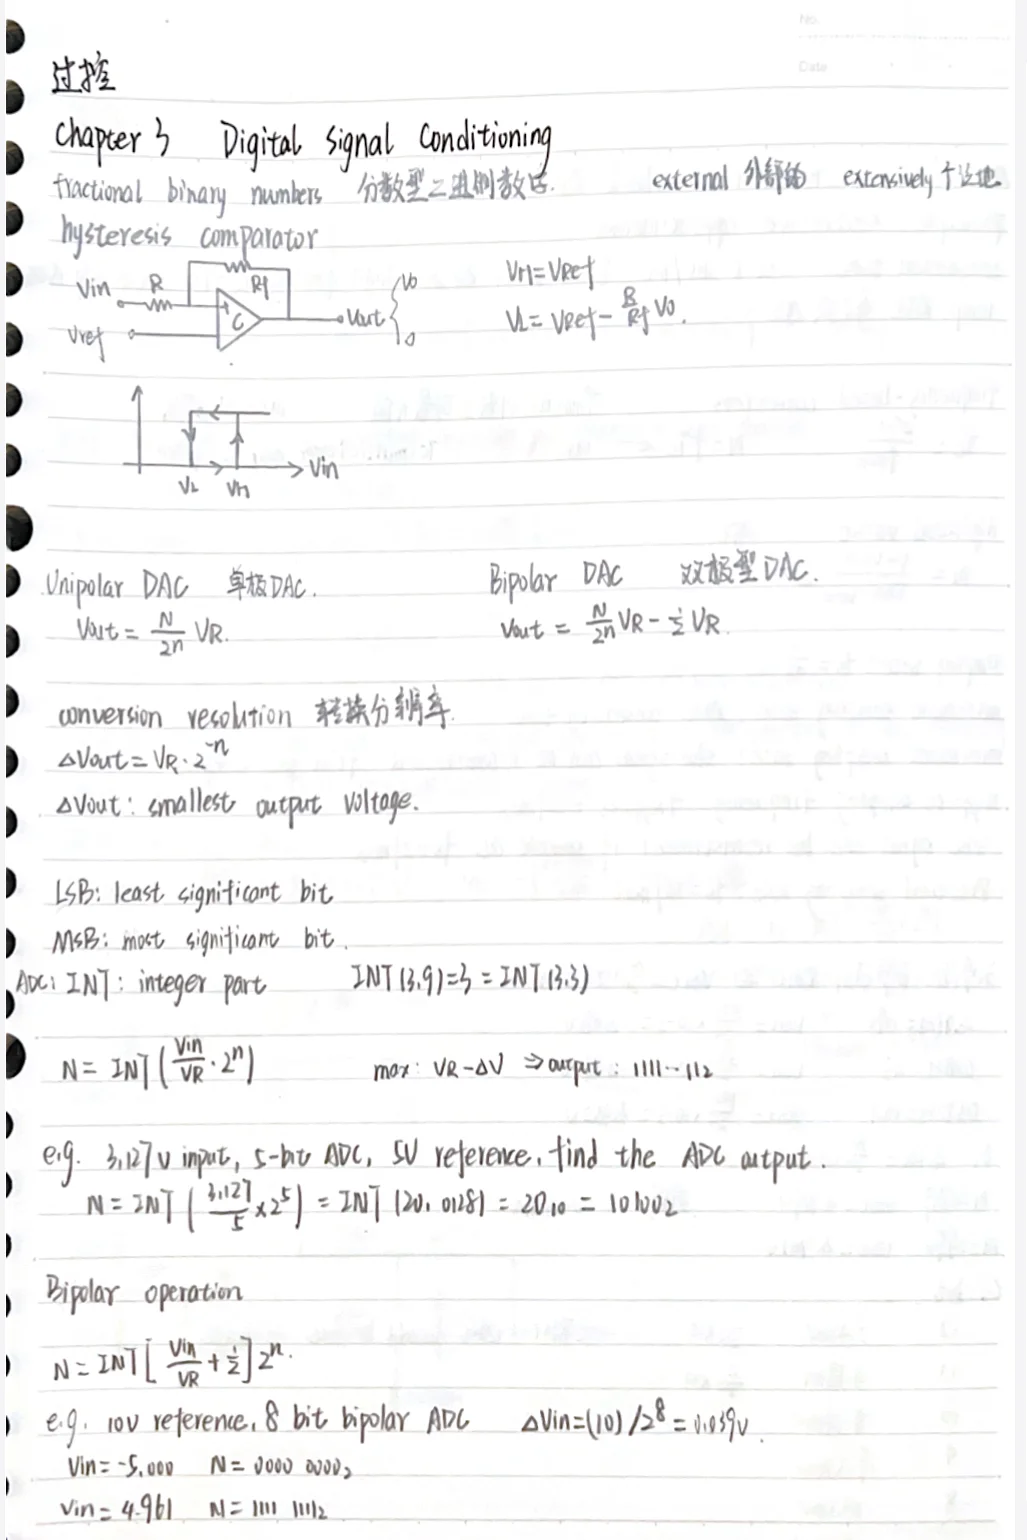 No.
Date
过控
Chapter 3 Digital Signal Conditioning
fractional binary numbers 分数型二进制数字. external 外部的 extensively 广泛地
hysteresis comparator
Vin R Rf VH=VRef
+ C Vout V0 0
Vref VL=VRef-R/Rf V0.
VL VH Vin
Unipolar DAC 单极DAC. Bipolar DAC 双极型DAC.
Vout = N/2ⁿ VR. Vout = N/2ⁿ VR - 1/2 VR.
conversion resolution 转换分辨率.
△Vout=VR·2⁻ⁿ
△Vout: smallest output voltage.
LSB: least significant bit
MSB: most significant bit.
ADC: INT: integer part INT(3.9)=3=INT(3.3)
N= INT(Vin/VR · 2ⁿ) max: VR-△V ⇒output: 1111…11₂
e.g. 3.127V input, 5-bit ADC, 5V reference, find the ADC output.
N= INT(3.127/5 ×2⁵) = INT(20.0128) = 20₁₀ = 10100₂
Bipolar operation
N= INT[Vin/VR + 1/2]2ⁿ.
e.g. 10V reference, 8 bit bipolar ADC △Vin=(10)/2⁸=0.039V.
Vin=-5.000 N= 0000 0000₂
Vin= 4.961 N= 1111 1111₂